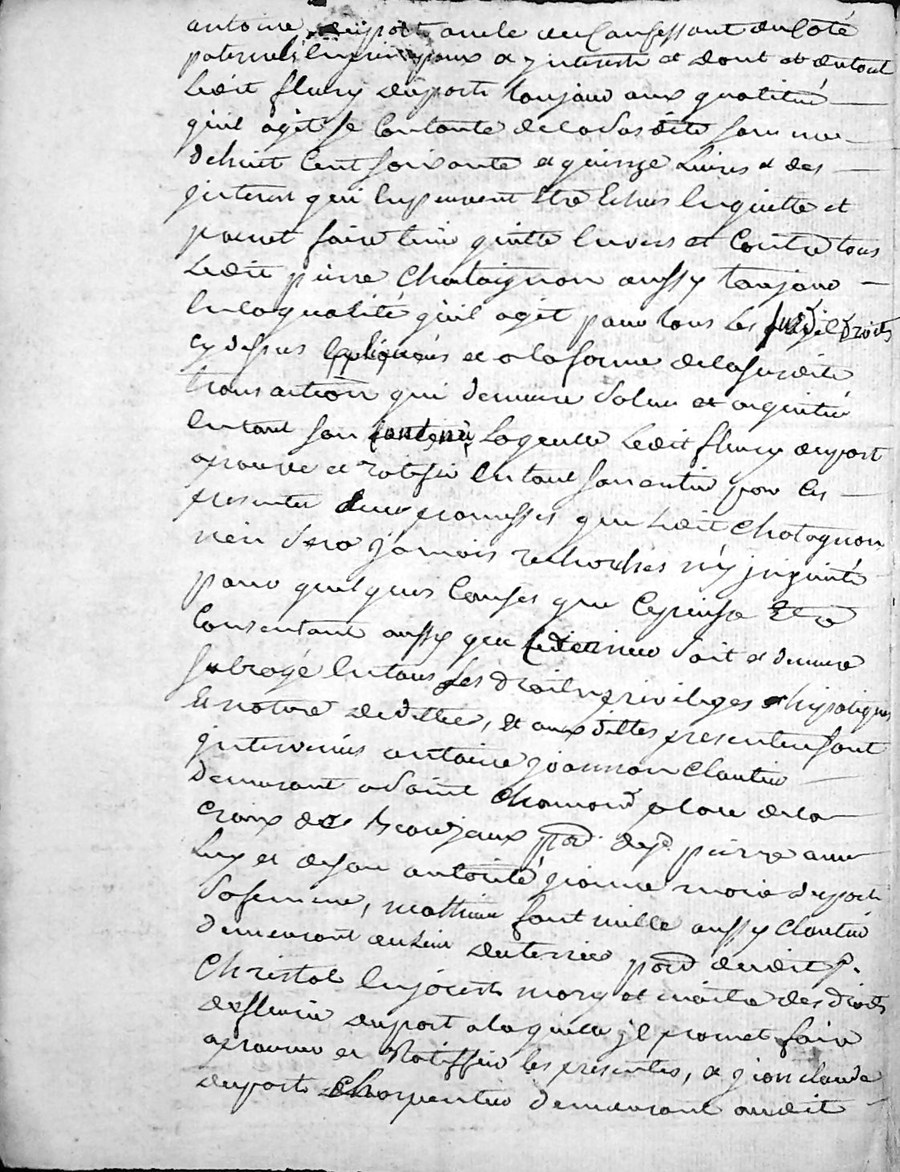 antoine duport oncle du Confessant du Coté
paternel en principaux & jnterests et dont et du tout
Ledit fleury duport toujour aux qualitué
qu'il agit se Contante de la Susditte somme
de huit Cent soixante et quinze Livres & des
jnterest qui en peuvent Etre Echus Enquitte et
promet faire tenir quitte Envers et Contre tous
Ledit pierre Chataignon aussy toujour
En la qualité qu'il agit pour tous les susd. Droits
cy dessus Expliqués et a la forme de la susditte
transaction qui demeure Solue et acquittée
En tout son Contenû, Laquelle Ledit fleury duport
aprouve et ratifie En tout son entier par les
presentes avec promesses que Ledit Chatagnon
n'en Sera jamais recherchés n'y jnquieté
pour quelques Causes que Ce puisse Etre
Consentant aussy que Ce dernier Soit et demeure
subrogé En tous ses droits privileges & hipoteques
Et notre deditte, Et aux dittes presentes sont
jntervenus antoine joannon Cloutier
demeurant a Saint Chamond place de la
Croix des pard. de pierre avec
Luy et de son autorité jeanne marie duport
Sa femme, mathieu font mille aussy Cloutier
demeurant au Lieu du terrier pard. dudit St.
Christol En jarest mary et maitre des droits
de fleurie duport a laquelle jl promet faire
aprouver et Ratiffier les presentes, & jean claude
duport Charpentier demeurant audit